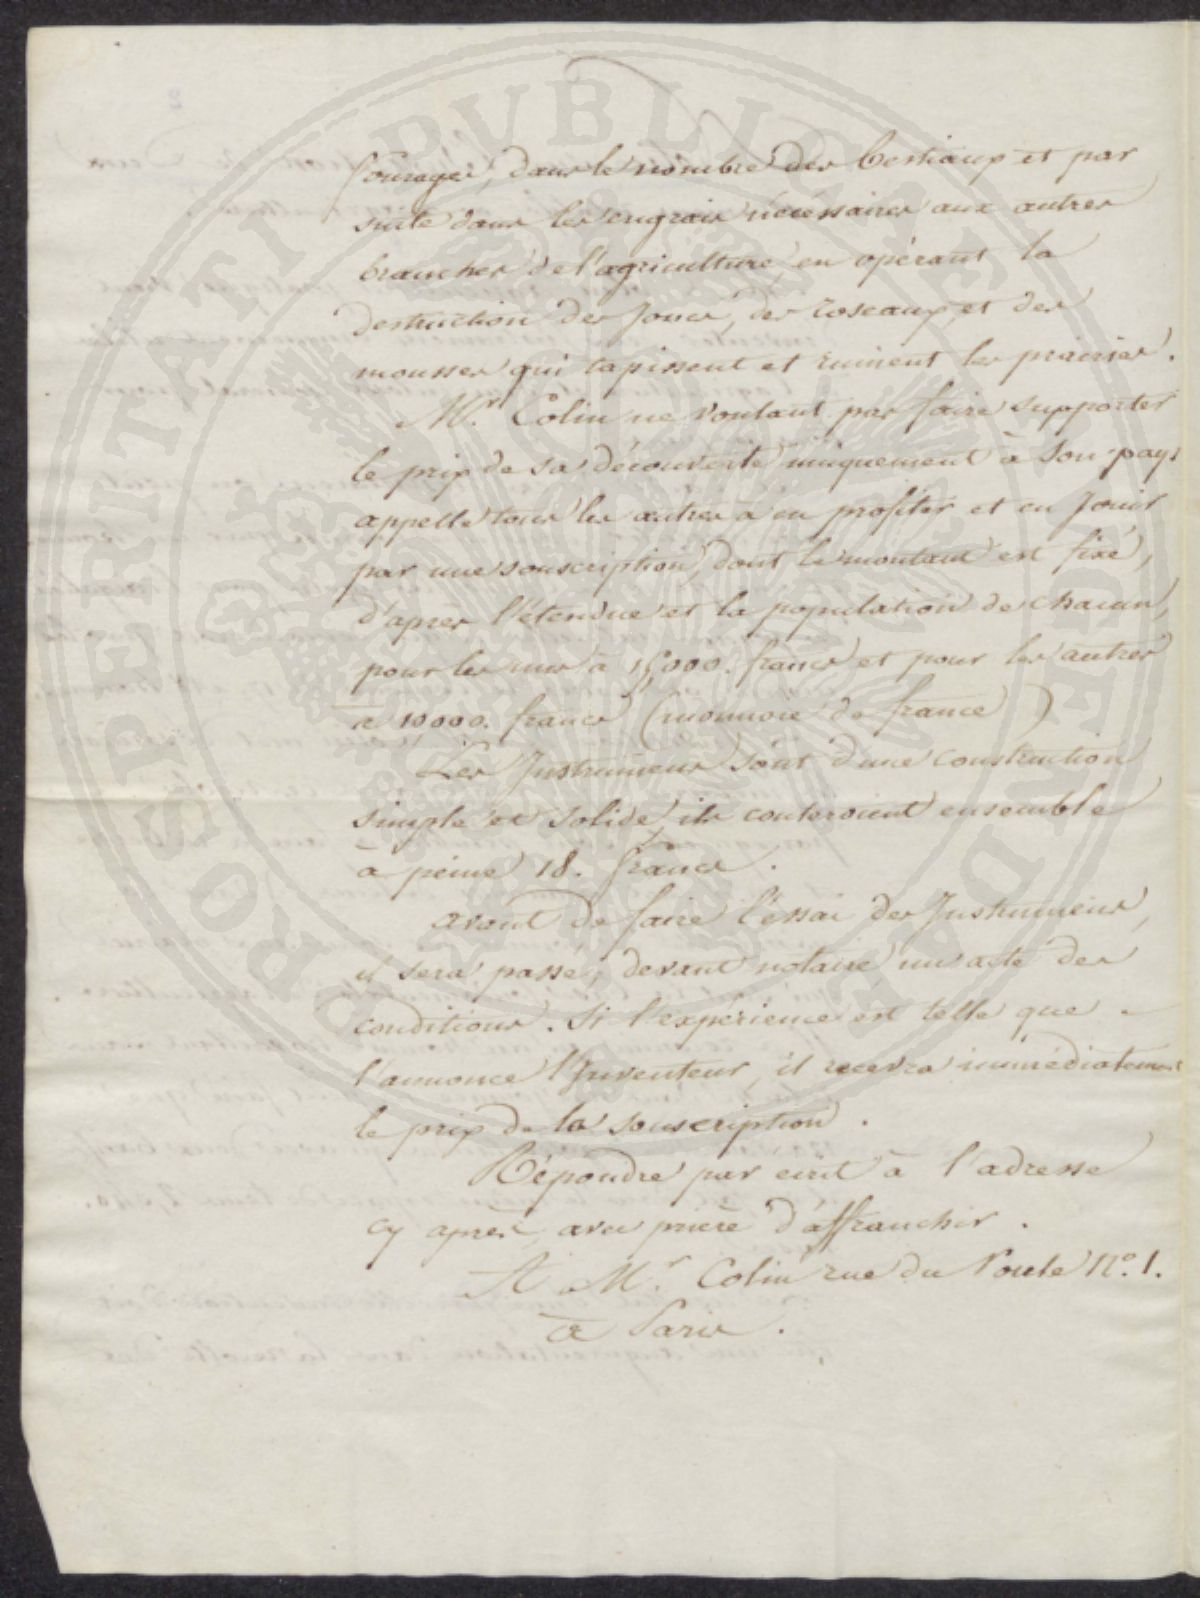 fourages, dans le nombre des bestiaux et par
suite dans les engrais nécessaires aux autres
branches de l'agriculture en opérant la
destruction des Joncs, des roseaux, et des
mousses qui tapissent et ruinent les prairies.
Mr. Colin ne voulant pas faire supporter
le prix de sa découverte uniquement à son pays
appelle tous les autres à en profiter et en Jouir
par une souscription, dont le montant est fixé,
d'après l'étendue et la population de chacun,
pour les uns à 15,000. francs et pour les autres
à 10000. francs (monnoie de france)
Les Instrumens sont d'une construction
simple et solide, ils couteroient ensemble
à peine 18. francs.
avant de faire l'éssai des Instrumens,
il sera passé, devant notaire un acte des
conditions. Si l'expérience est telle que
l'annonce l'Inventeur, il recevra immédiatement
le prix de la souscription.
Répondre par écrit à l'adresse
cy après, avec prière d'affranchir.
A Mr. Colin rue du No. 1.
à Paris.
PROSPERITATI PUBLICAE AUGENDAE
2